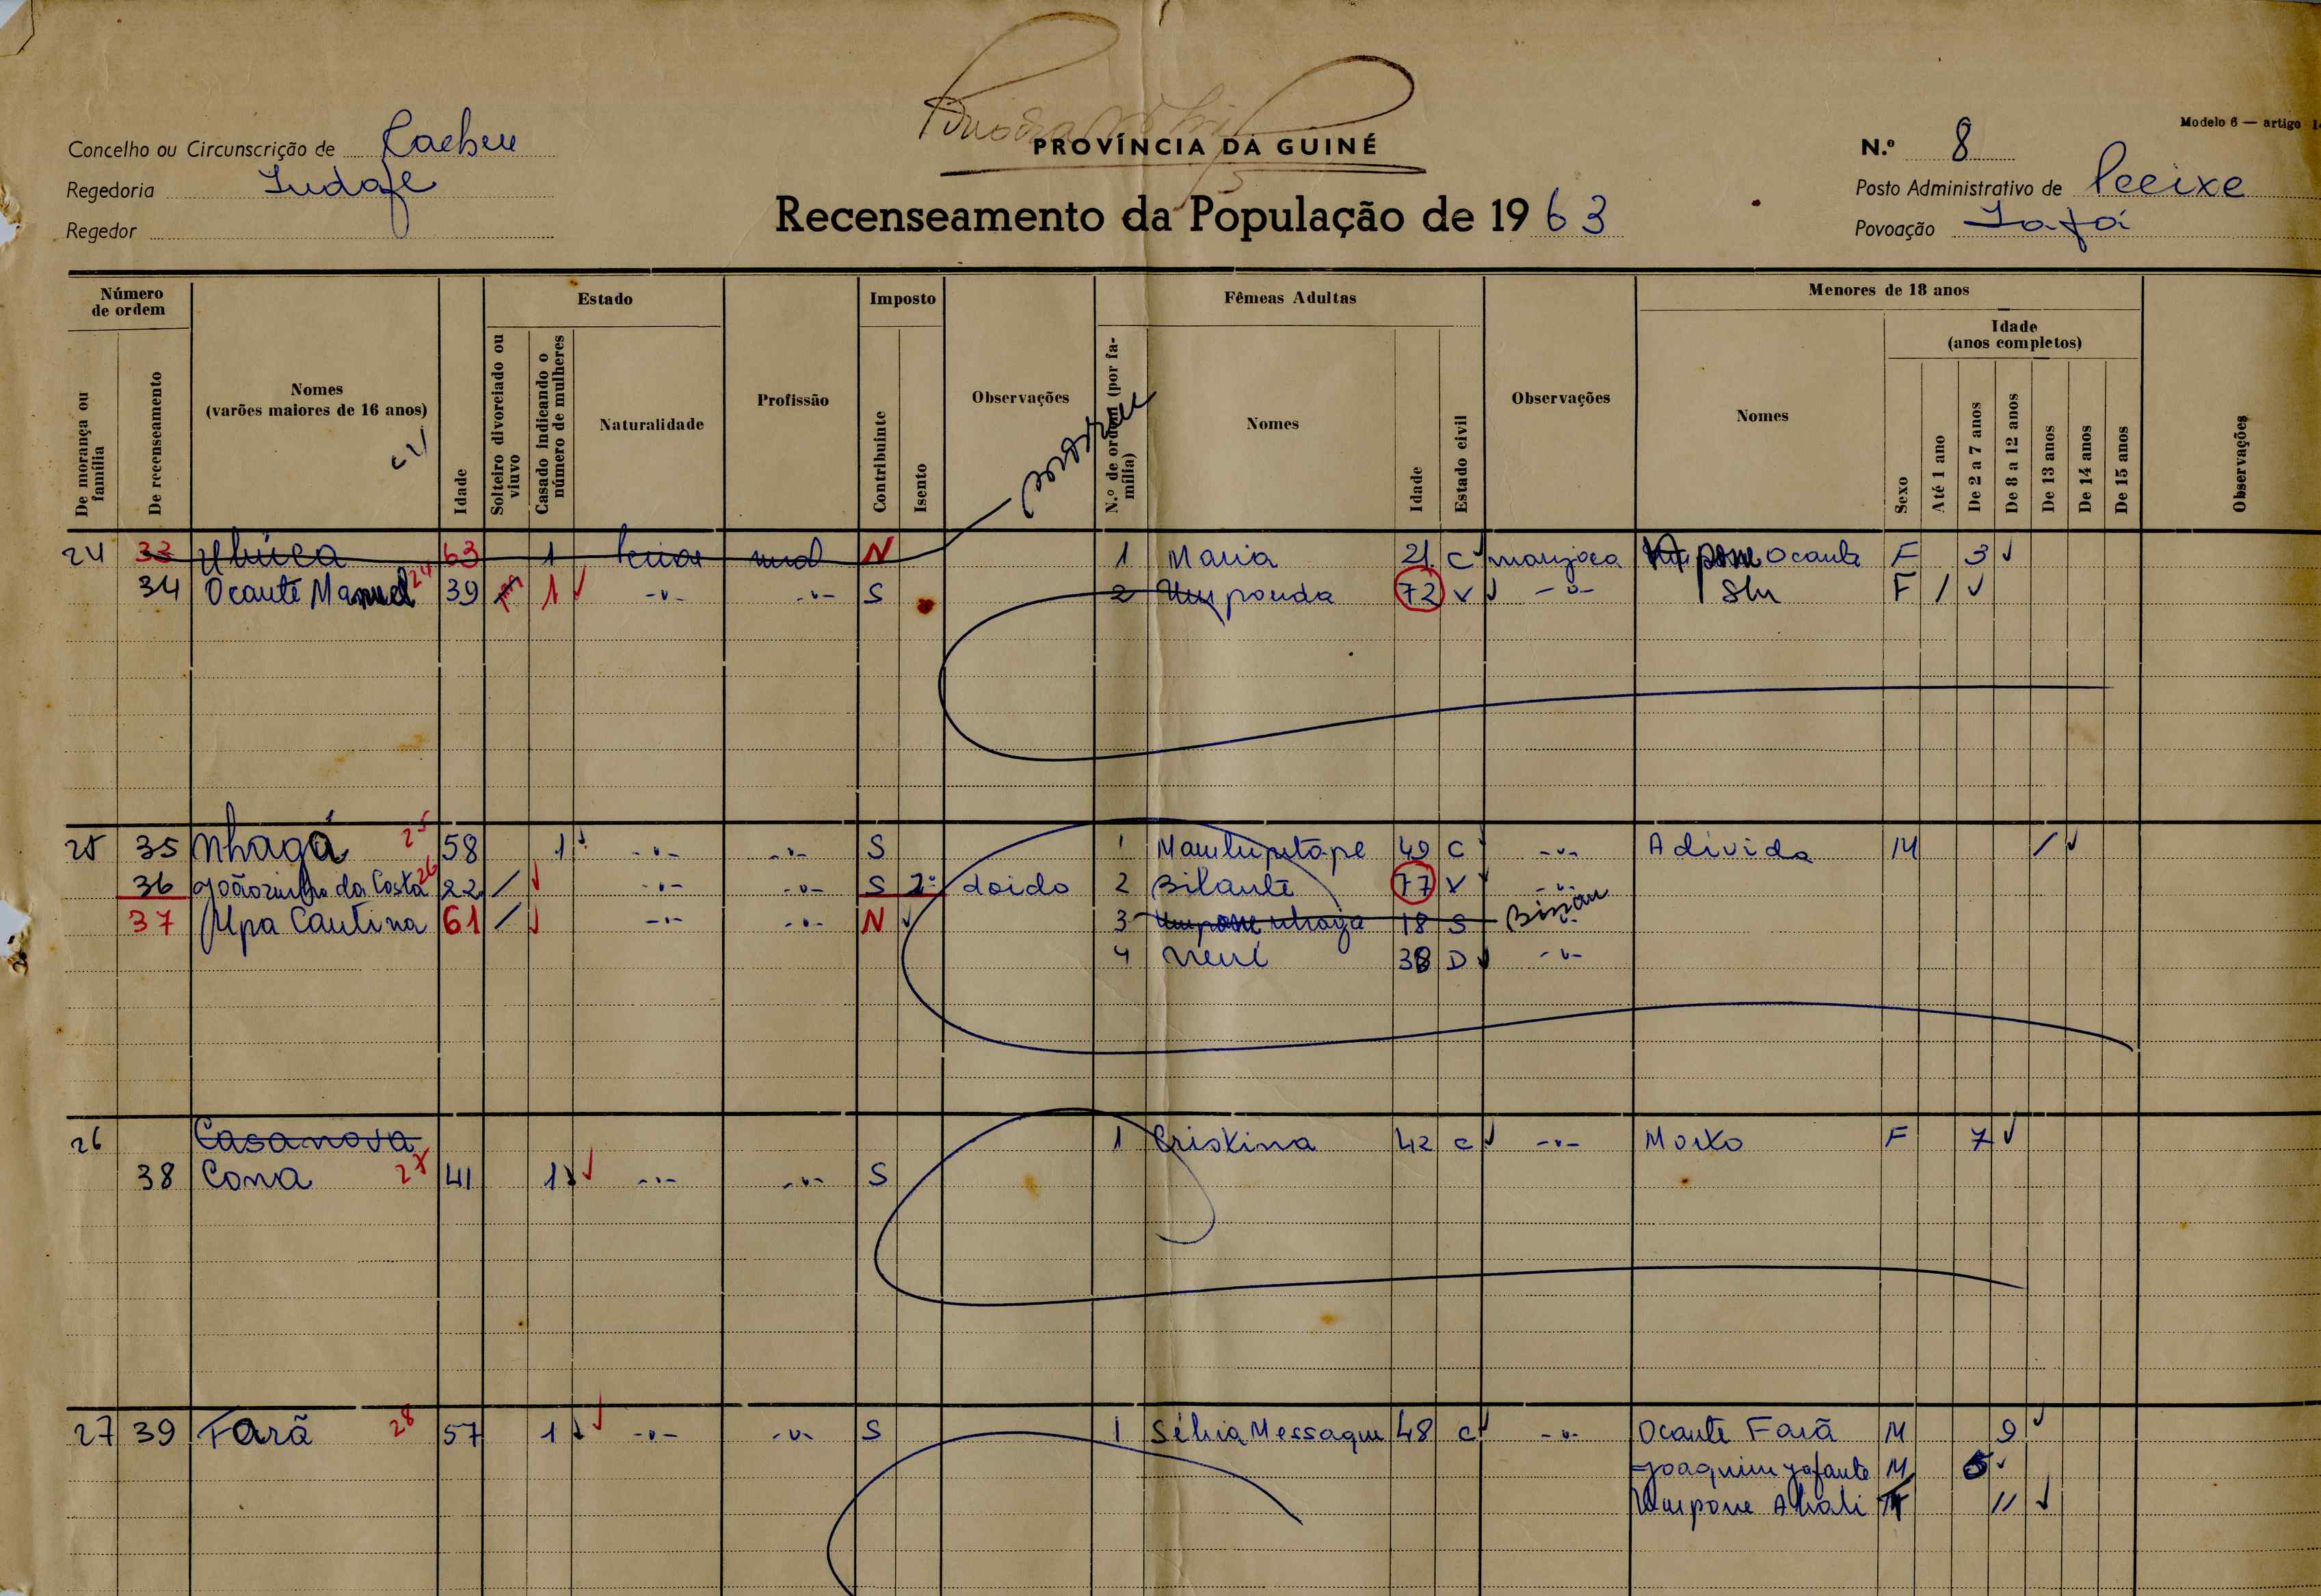 Modelo 6 — artigo
Concelho ou Circunscrição de Cacheu
PROVÍNCIA DA GUINÉ
N.º 8
Regedoria
Posto Administrativo de
Regedor
Recenseamento da População de 1963
Povoação
Número de ordem
Estado
Imposto
Fêmeas Adultas
Menores de 18 anos
Idade (anos completos)
De morança ou família
De recenseamento
Nomes (varões maiores de 16 anos)
Idade
Solteiro divorciado ou viuvo
Casado indicando o número de mulheres
Naturalidade
Profissão
Contribuinte
Isento
Observações
N.º de ordem (por família)
Nomes
Idade
Estado civil
Observações
Nomes
Sexo
Até 1 ano
De 2 a 7 anos
De 8 a 12 anos
De 13 anos
De 14 anos
De 15 anos
Observações
morreu
24 33 63 1 N 1 Maria 21 C manjaca Ocante F 3
34 Ocante Manuel 24 39 1 -"- -"- S 2 72 V -"- F /
25 35 Nhagá 25 58 1 -"- -"- S 1 49 C -"- A divida M /
36 Joãozinho da Costa 26 22 / -"- -"- S 2º doido 2 Bilante 77 V -"-
37 Mpa Cantina 61 / -"- -"- N 3 18 S Bissau
4 38 D -"-
26 Casa nova 1 Cristina 42 C -"- F 7
38 Cona 27 41 1 -"- -"- S
27 39 Farã 28 57 1 -"- -"- S 1 48 C -"- Ocante Farã M 9
Joaquim Jafante M 5
11